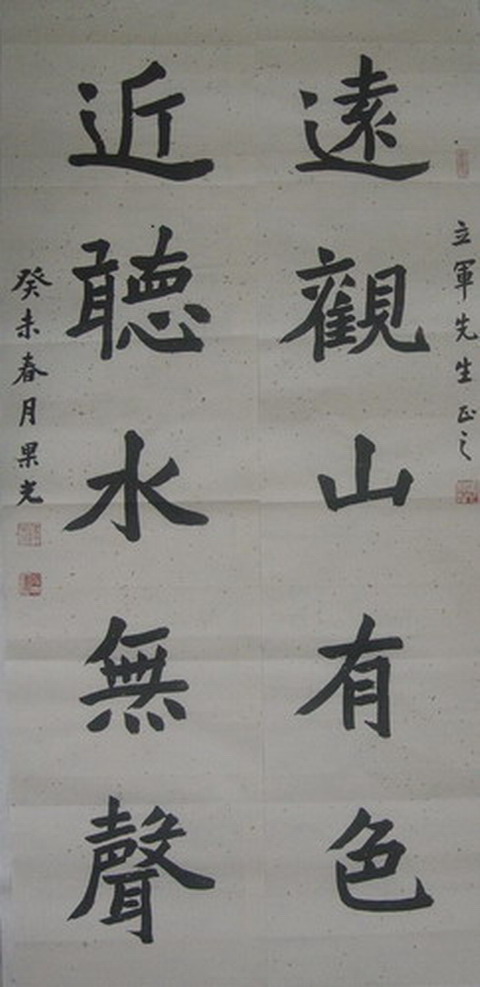 立軍先生正之
遠觀山有色
近聽水無聲
癸未春月果光